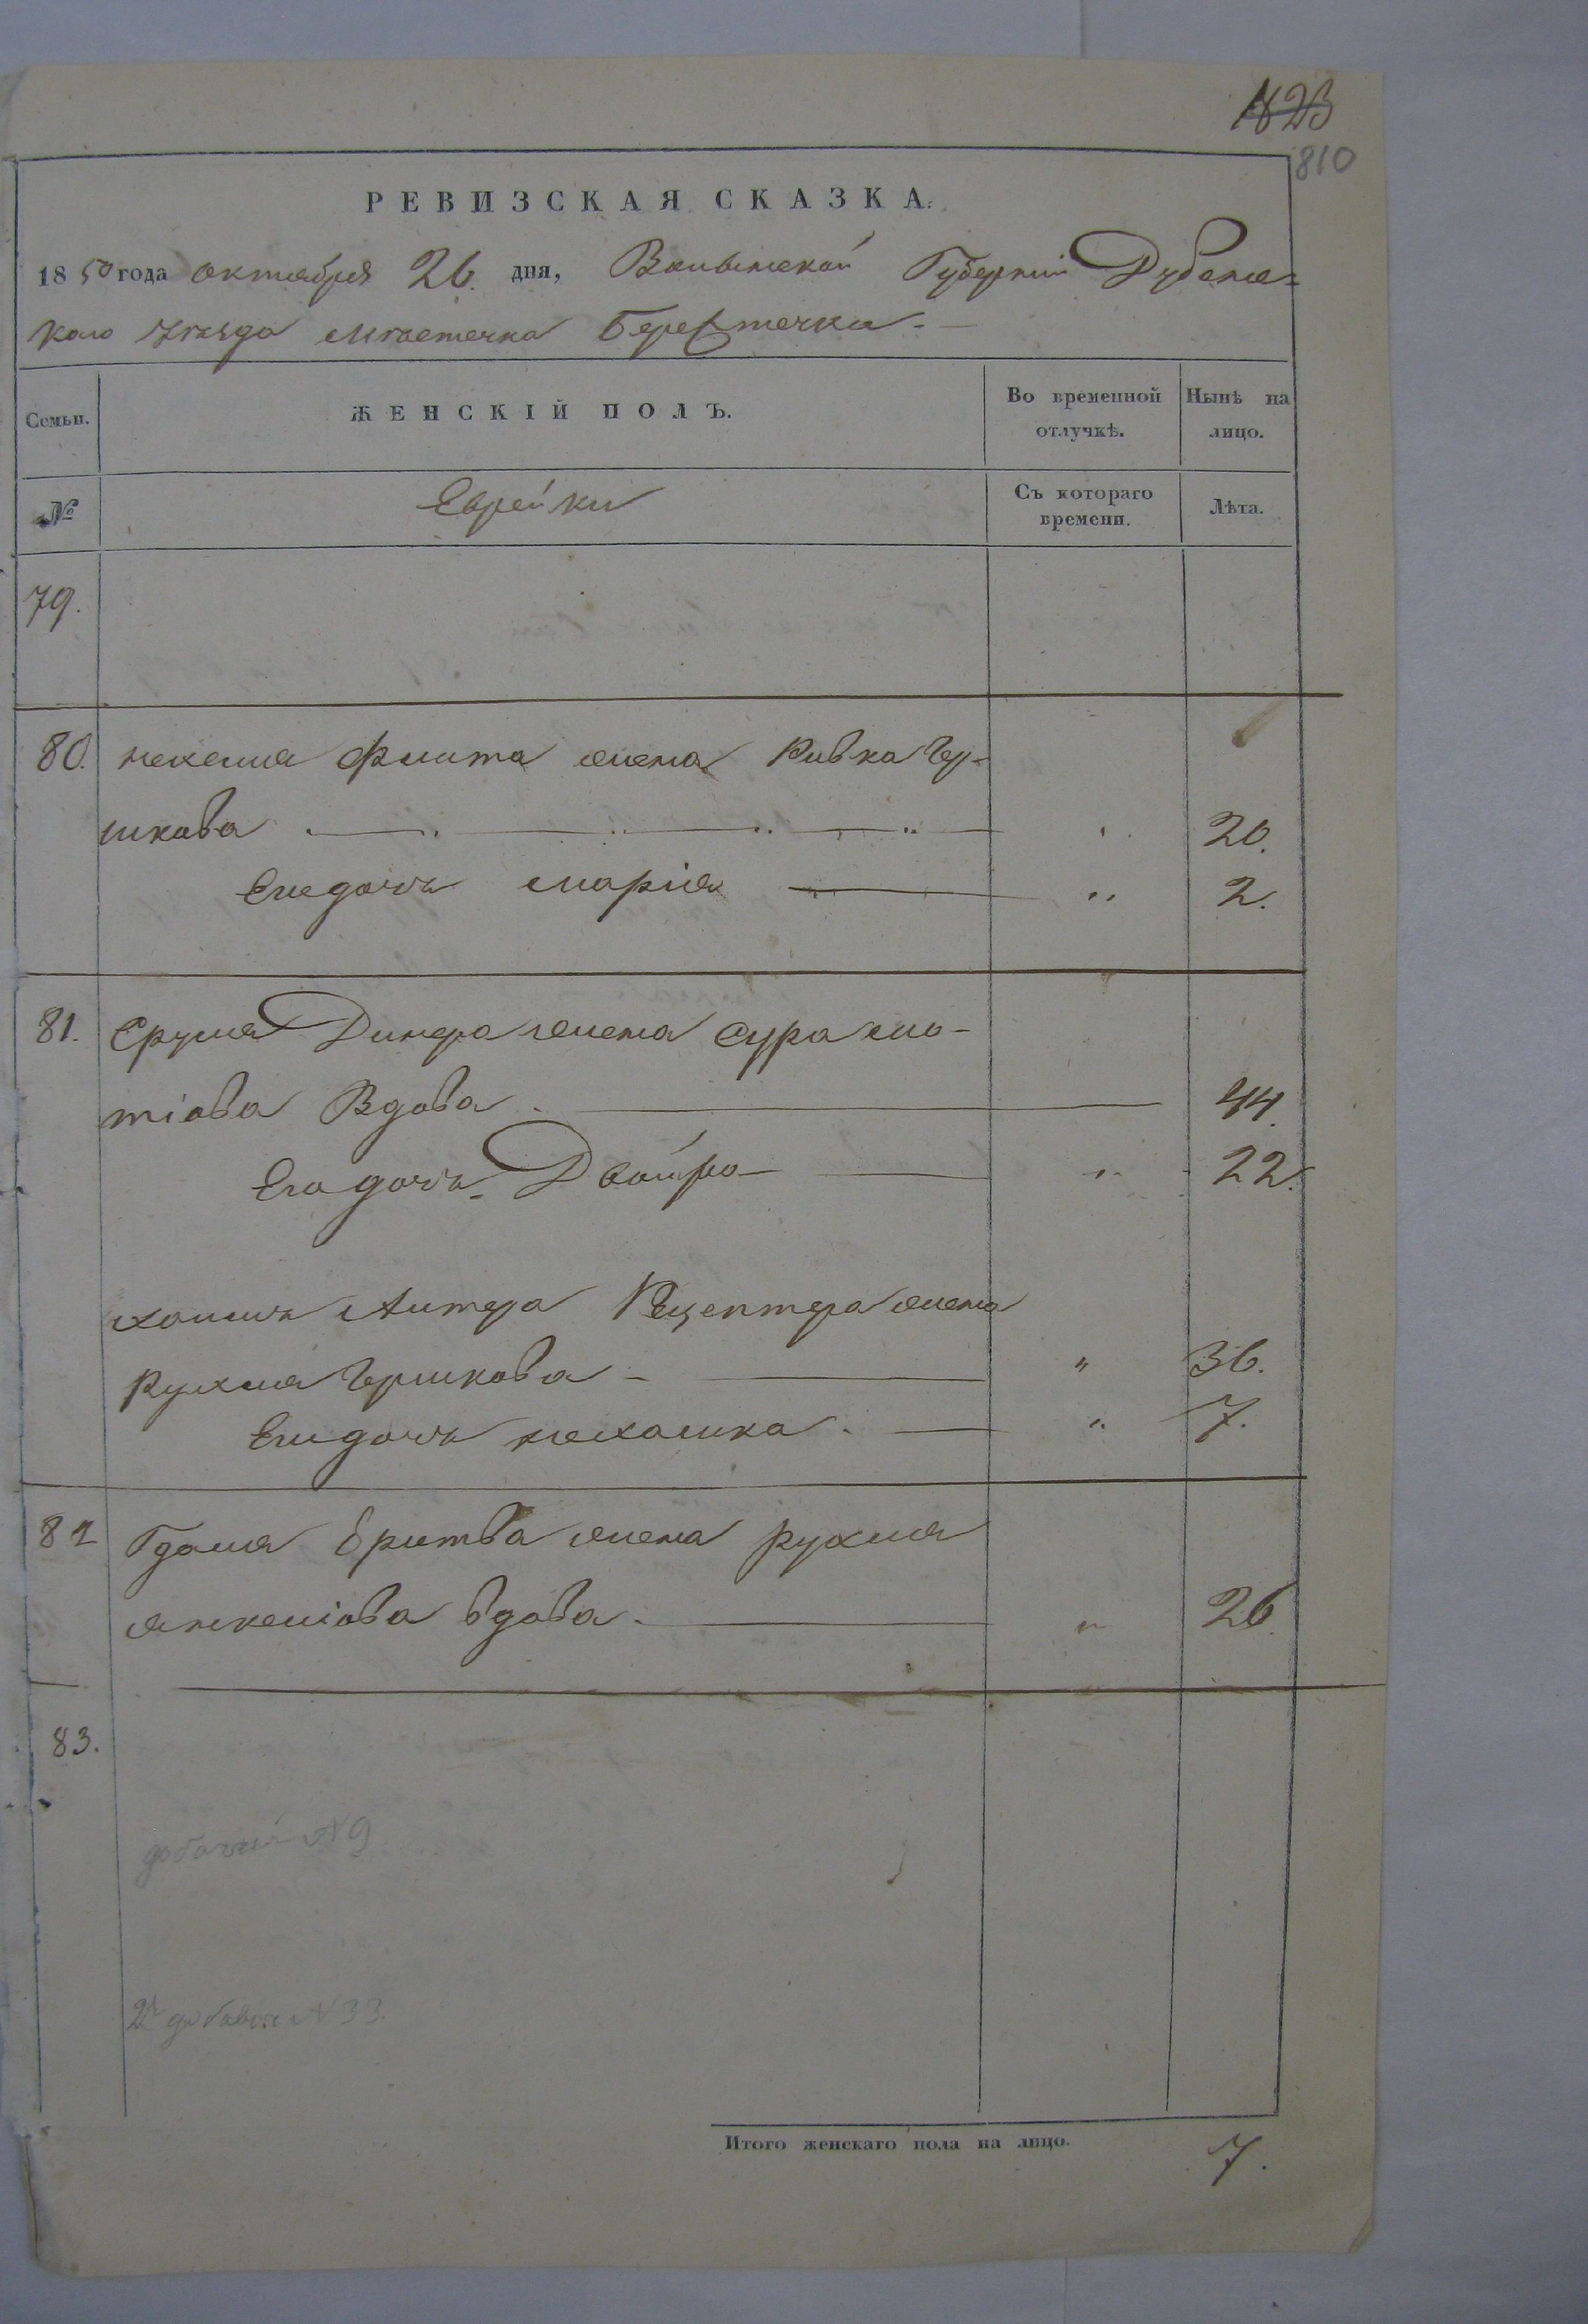 1823
810
РЕВИЗСКАЯ СКАЗКА.
1850 года октября 26 дня, Волынской Губернии Дубенс=
кого уѣзда мѣстечка Берестечка.
Семьи.
ЖЕНСКІЙ ПОЛЪ.
Во временной отлучкѣ.
Нынѣ на лицо.
№
Еврейки
Съ котораго времени.
Лѣта.
79.
80. жена Ривка Гер=
шкова " 20.
Его дочь Марія " 2.
81. Сруля Динера жена Сура Мо-
тіова Вдова 44.
Его дочь Двойра " 22.
Хаима Литера жена
Рухля Гершкова " 36.
Его дочь " 7.
82 жена Рухля
Янкеліова вдова. " 26
83.
№ 9
2й № 33.
Итого женскаго пола на лицо. 7.